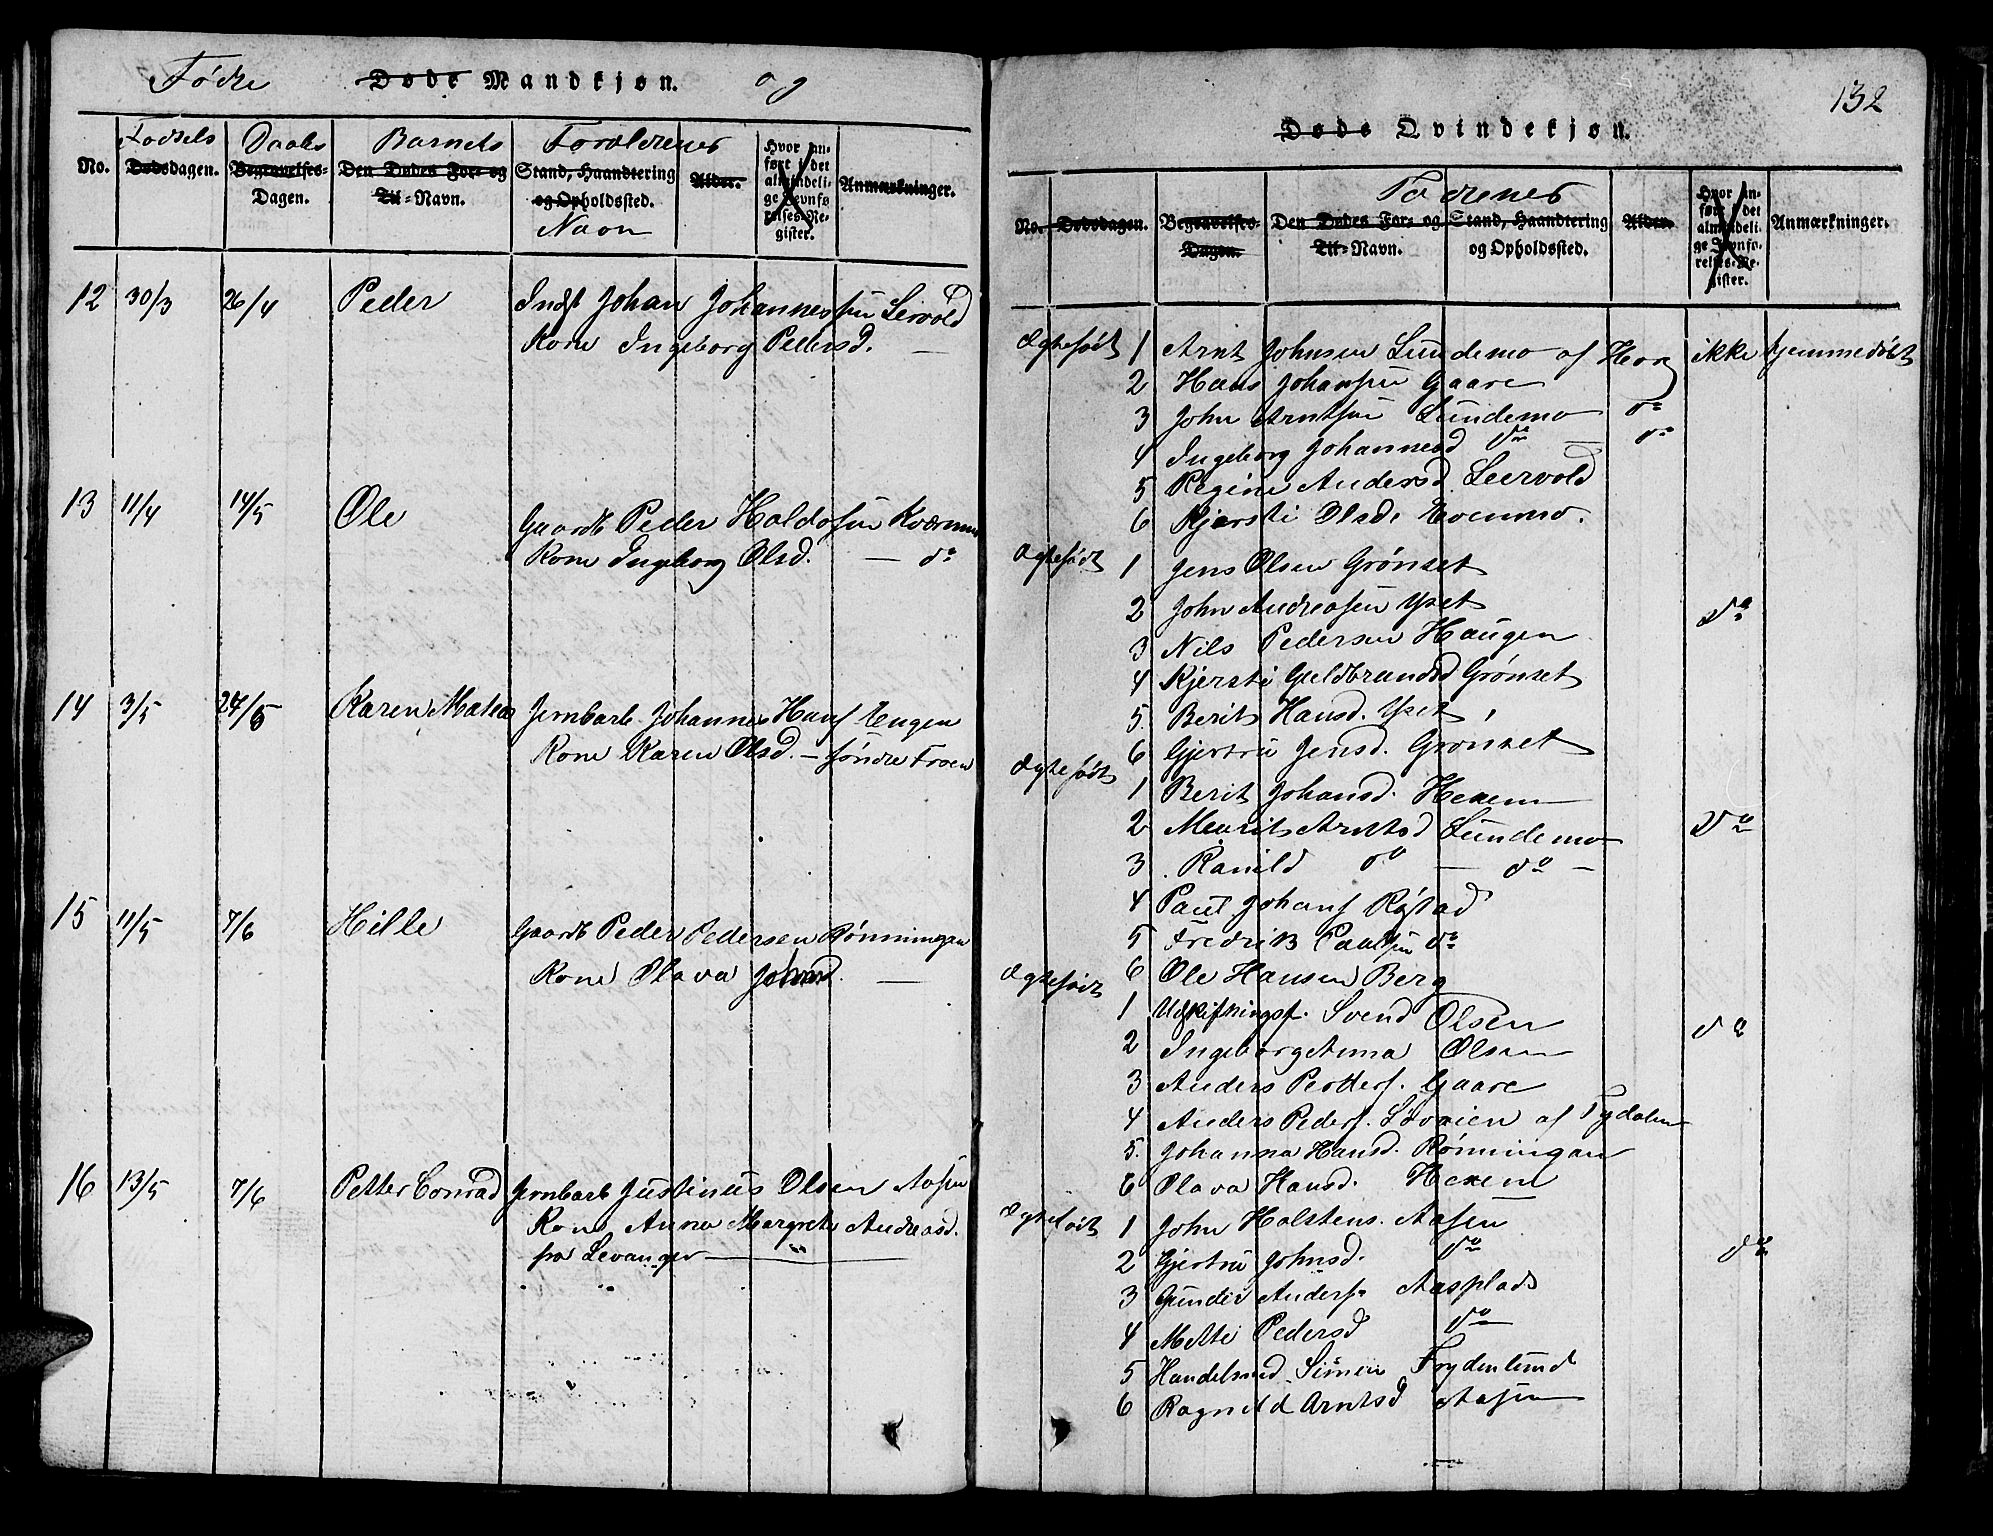 Fødte Døde Mandkjøn. og
No. Fødsels Dødsdagen. Daabs Begravelses-Dagen. Barnets Den Dødes For- og Til-Navn. Forældrenes Stand, Haandtering og Opholdssted. Navn Alder. Hvor anført i det almindelige Jevnførelses-Register. Anmærkninger.
12 30/3 26/4 Peder Indst Johan Johannessen Leervold
Kone Ingeborg Pedersd. —
13 11/4 14/5 Ole Gaardb Peder Haldosen Kværnmo
Kone Ingeborg Olsd. — do
14 3/5 24/5 Karen Matea Jernbarb. Johannes Hansf Engen
Kone Karen Olsd. — søndre Froen
15 11/5 7/6 Hille Gaardb Peder Pedersen Rønningen
Kone Olava Johansd. —
16 13/5 7/6 Petter Conrad Jernbarb Justinus Olsen Aasen
Kone Anna Margrete Andreasd.
fra Levanger
132
Døde Qvindekjøn.
No. Dødsdagen. Begravelses-Dagen. Den Dødes For- og Til-Navn. Fadrenes Stand, Haandtering og Opholdssted. Alder. Hvor anført i det almindelige Jevnførelses-Register. Anmærkninger.
Ægtefødt 1 Arnt Johnsen Lundemo af Horg ikke hjemmedøbt
2 Hans Johansen Gaare
3 John Arntsen Lundemo do
4 Ingeborg Johannesd do — do
5 Regine Andersd. Leervold
6 Kjersti Olsd. Evenmo.
Ægtefødt 1 Jens Olsen Grønset
2 John Andreasen Yset do
3 Nils Pedersen Haugen
4 Kjersti Guldbrandsd Grønset
5. Berit Hansd. Yset
6 Gjertru Jensd. Grønset
Ægtefødt 1 Berit Johansd. Hexem
2 Meurit Arntsd Lundemo do
3 Ranild do — do —
4 Paul Johansf Røstad
5 Fredrik Paulsen do
6 Ole Hansen Berg
Ægtefødt 1 Udskiftningsf. Svend Olsen do
2 Ingeborg Anna Olsen
3 Anders Pettersf. Gaare
4 Anders Pedersf. Løvøien af Tydalen
5. Johanna Hansd. Rønningen
6 Olava Hansd. Hexem
Ægtefødt 1 John Holstens. Aasen
2 Gjertru Johnsd. do do
3 Gunder Anders. Aasplads
4 Mette Pedersd do
5 Handelsmd. Simen Frydenlund
6 Ragnild Arntsd Aasen